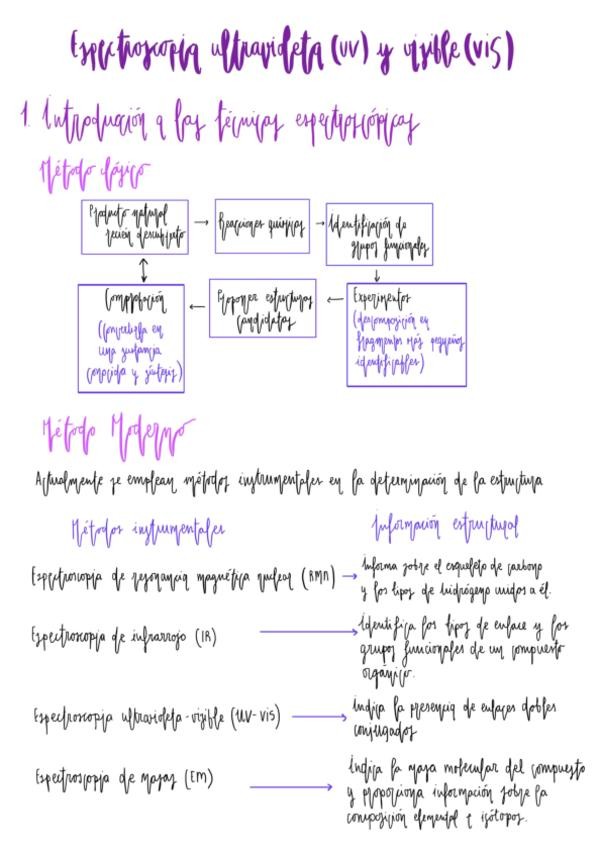 Espectroscopia ultravioleta (UV) y visible (VIS)
1. Introducción a las técnicas espectroscópicas
Método clásico
Producto natural
recién descubierto
Reacciones químicas
Identificación de
grupos funcionales
Comprobación
(convertirla en
una sustancia
conocida y síntesis)
Proponer estructuras
candidatas
Experimentos
(descomposición en
fragmentos más pequeños
identificables)
Método Moderno
Actualmente se emplean métodos instrumentales en la determinación de la estructura
Métodos instrumentales
Información estructural
Espectroscopia de resonancia magnética nuclear (RMN)
Informa sobre el esqueleto de carbono
y los tipos de hidrógeno unidos a él.
Espectroscopia de infrarrojo (IR)
Identifica los tipos de enlace y los
grupos funcionales de un compuesto
orgánico.
Espectroscopia ultravioleta-visible (UV-VIS)
Indica la presencia de enlaces dobles
conjugados
Espectroscopia de masas (EM)
Indica la masa molecular del compuesto
y proporciona información sobre la
composición elemental e isótopos.